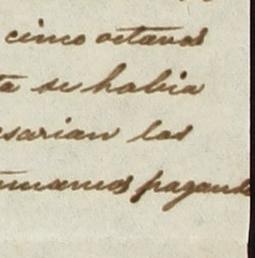 cinco octavos
ta se habia
esarian las
amamos pagando